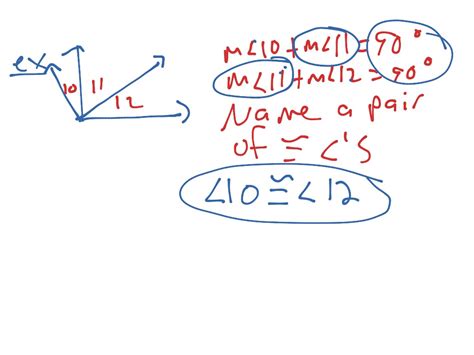 ex
10 11 12
m∠10 + m∠11 = 90°
m∠11 + m∠12 = 90°
Name a pair
of ≅ ∠'s
∠10 ≅ ∠12